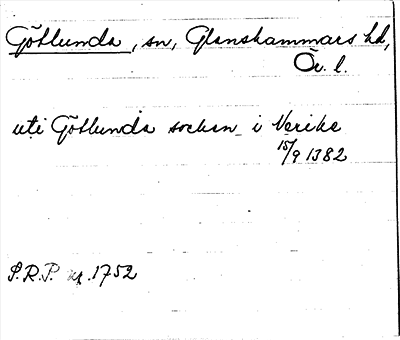 Götlunda, sn, Glanshammars hd,
Ör. l.
uti Götlunda socken i Nerike
15/9 1382
S.R.P. nr. 1752